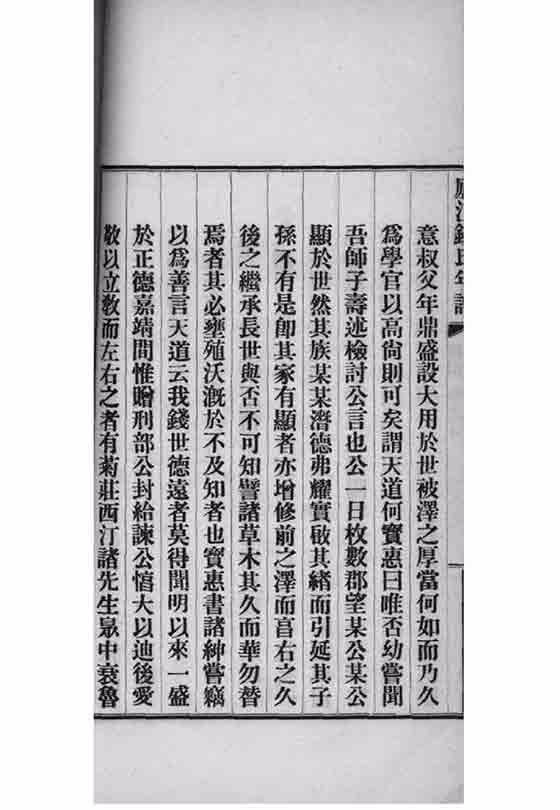 廬江錢氏年譜
意叔父年鼎盛設大用於世被澤之厚當何如而乃久
爲學官以高尙則可矣謂天道何寳惠曰唯否幼嘗聞
吾師子壽述檢討公言也公一日枚數郡望某公某公
顯於世然其族某某濳德弗耀實啟其緒而引延其子
孫不有是卽其家有顯者亦增修前之澤而亯右之久
後之繼承長世與否不可知譬諸草木其久而華勿替
焉者其必壅殖沃漑於不及知者也寳惠書諸紳嘗竊
以爲善言天道云我錢世德遠者莫得聞明以來一盛
於正德嘉靖間惟贈刑部公封給諫公慉大以迪後愛
敬以立敎而左右之者有菊莊西汀諸先生㬱中衰魯